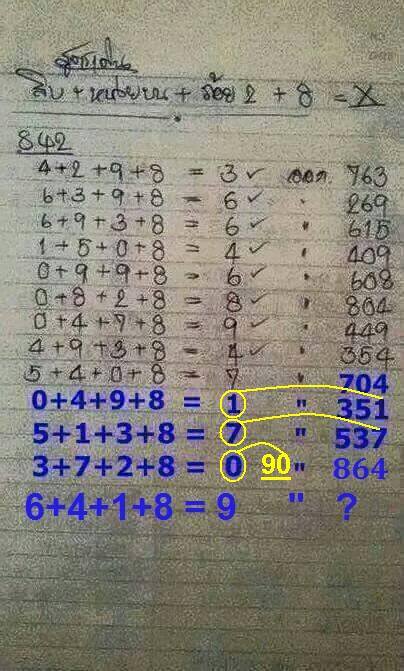 สิบ + หน่วยบน + ร้อย 2 + 8 = X
842
4+2+9+8 = 3 ✓ ออก. 763
6+3+9+8 = 6 ✓ " 269
6+9+3+8 = 6 ✓ " 615
1+5+0+8 = 4 ✓ " 409
0+9+9+8 = 6 ✓ " 608
0+8+2+8 = 8 ✓ " 804
0+4+7+8 = 9 ✓ " 449
4+9+3+8 = 4 ✓ " 354
5+4+0+8 = 7 " 704
0+4+9+8 = 1 " 351
5+1+3+8 = 7 " 537
3+7+2+8 = 0 90 " 864
6+4+1+8 = 9 " ?